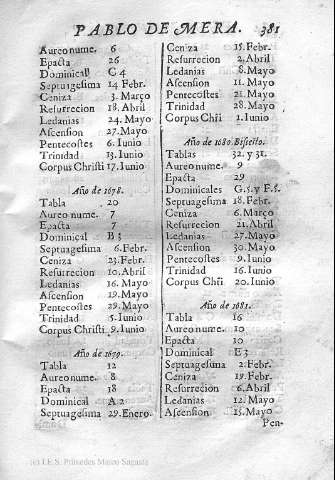 PABLO DE MERA. 381
Aureo nume. 6
Epacta 26
Dominical C 4
Septuagesima 14 Febr.
Ceniza 3. Março
Resurreccion 18. Abril
Ledanias 24. Mayo
Ascension 27. Mayo
Pentecostes 6. Iunio
Trinidad 13. Iunio
Corpus Christi 17. Iunio
Año de 1678.
Tabla 20
Aureo nume. 7
Epacta 7
Dominical B 3
Septuagesima 6. Febr.
Ceniza 23. Febr.
Resurreccion 10. Abril
Ledanias 16. Mayo
Ascension 19. Mayo
Pentecostes 29. Mayo
Trinidad 5. Iunio
Corpus Christi 9. Iunio
Año de 1679.
Tabla 12
Aureo nume. 8
Epacta 18
Dominical A 2
Septuagesima 29. Enero.
Ceniza 15. Febr.
Resurreccion 2. Abril
Ledanias 8. Mayo
Ascension 11. Mayo
Pentecostes 21. Mayo
Trinidad 28. Mayo
Corpus Chři 1. Iunio
Año de 1680. Bisiesto.
Tablas 32. y 31.
Aureo nume. 9
Epacta 29
Dominicales G.5. y F.5.
Septuagesima 18. Febr.
Ceniza 6. Março
Resurreccion 21. Abril
Ledanias 27. Mayo
Ascension 30. Mayo
Pentecostes 9. Iunio
Trinidad 16. Iunio
Corpus Chři 20. Iunio
Año de 1681.
Tabla 16
Aureo nume. 10
Epacta 10
Dominical E 3
Septuagesima 2. Febr.
Ceniza 19. Febr.
Resurreccion 6. Abril
Ledanias 12. Mayo
Ascension 15. Mayo
Pen-
(c) I.E.S. Práxedes Mateo Sagasta